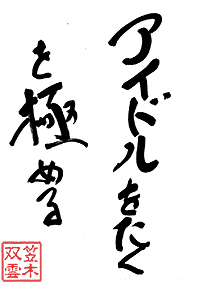 アイドルをたく
を極める
笠木
双雲